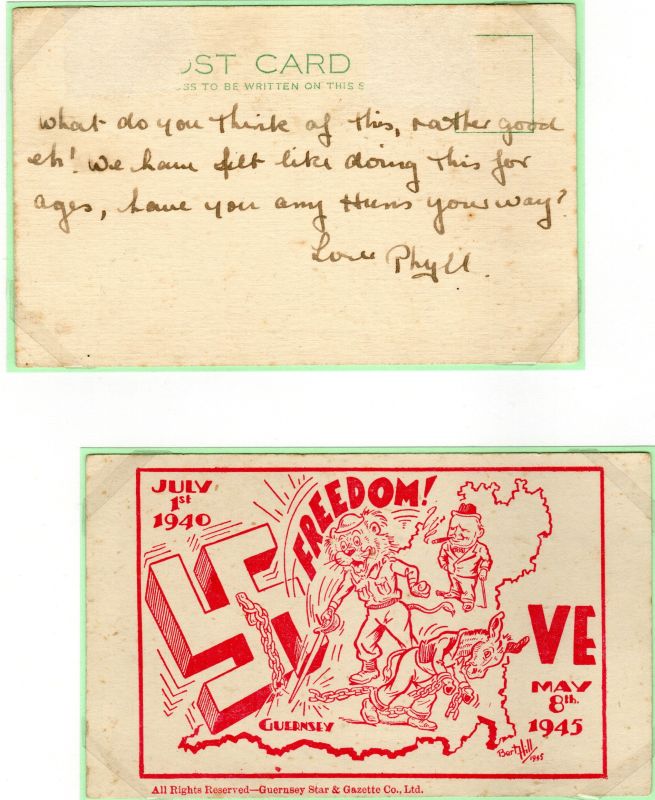 OST CARD
SS TO BE WRITTEN ON THIS S
What do you think of this, rather good
eh! We have felt like doing this for
ages, have you any Huns your way?
Love Phyll.
JULY
1st
1940
FREEDOM!
VE
MAY
8th.
1945
GUERNSEY
Bert Hill
1945
All Rights Reserved—Guernsey Star & Gazette Co., Ltd.